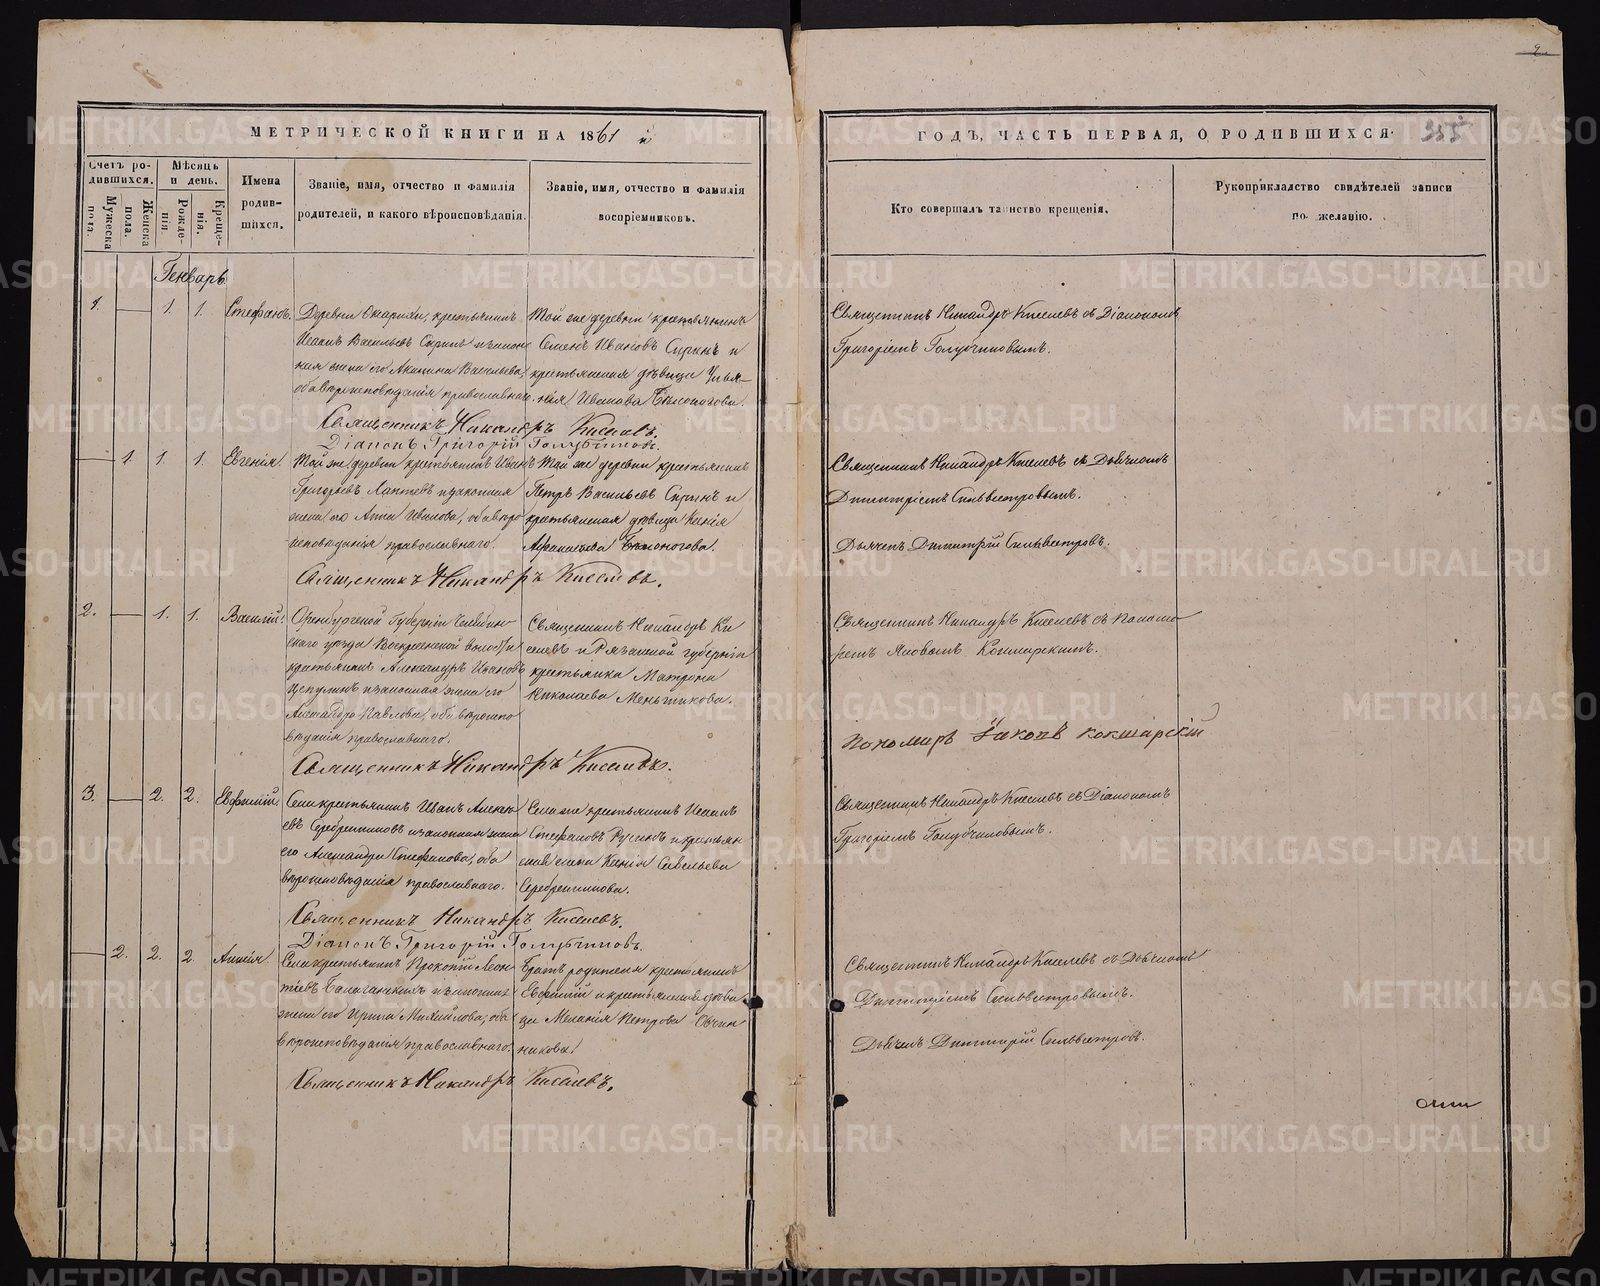 МЕТРИЧЕСКОЙ КНИГИ НА 1861 й
ГОДЪ, ЧАСТЬ ПЕРВАЯ, О РОДИВШИХСЯ.
355
Счетъ ро-
дившихся.
Мужеска
пола.
Женска
пола.
Мѣсяцъ
и день.
Рожде-
нія.
Креще-
нія.
Имена
родив-
шихся.
Званіе, имя, отчество и фамилія
родителей, и какого вѣроисповѣданія.
Званіе, имя, отчество и фамилія
воспріемниковъ.
Кто совершалъ таинство крещенія.
Рукоприкладство свидѣтелей записи
по желанію.
Генварь
1. 1. 1. Стефанъ.
Деревни крестьянинъ
Исаакъ Васильевъ Сыринъ и закон
ная жена его Акилина Васильева,
оба вѣроисповѣданія православнаго.
Той же деревни крестьянинъ
Семенъ Ивановъ Сыринъ и
крестьянская дѣвица Улья-
нія Иванова Бѣлоногова.
Священникъ Никандръ Киселевъ съ Діакономъ
Григоріемъ Голубчиковымъ.
Священникъ Никандръ Киселевъ.
Діаконъ Григорій Голубчиковъ.
1. 1. 1. Евгенія.
Той же деревни крестьянинъ Иванъ
Григорьевъ Лаптевъ и законная
жена его Анна Иванова, оба вѣро
исповѣданія православнаго.
Той же деревни крестьянинъ
Петръ Васильевъ Сыринъ и
крестьянская дѣвица Ксенія
Афанасьева Бѣлоногова.
Священникъ Никандръ Киселевъ съ Дьячкомъ
Димитріемъ Сильвестровымъ.
Дьячекъ Димитрій Сильвестровъ.
Священникъ Никандръ Киселевъ.
2. 1. 1. Василій.
Оренбургской Губерніи Челябин-
скаго уѣзда Воскресенской волости
крестьянинъ Александръ Ивановъ
Цепулинъ и законная жена его
Александра Павлова, оба вѣроиспо
вѣданія православнаго.
Священникъ Никандръ Ки
селевъ и Рязанской губерніи
крестьянка Матрона
Николаева Меньшикова.
Священникъ Никандръ Киселевъ съ Понома
ремъ Яковомъ Кокшарскимъ.
Пономарь Іаковъ Кокшарскій
Священникъ Никандръ Киселевъ.
3. 2. 2. Евфимій.
Села крестьянинъ Иванъ Алексѣ
евъ Серебренниковъ и законная жена
его Александра Стефанова, оба
вѣроисповѣданія православнаго.
Села же крестьянинъ Исаакъ
Стефановъ Русинъ и крестьян
ская жена Ксенія Савельева
Серебренникова.
Священникъ Никандръ Киселевъ съ Діакономъ
Григоріемъ Голубчиковымъ.
Священникъ Никандръ Киселевъ.
Діаконъ Григорій Голубчиковъ.
2. 2. 2
Села крестьянинъ Прокопій Леон
тіевъ Балаганскихъ и законная
жена его Ирина Михайлова, оба
вѣроисповѣданія православнаго.
Братъ родителя крестьянинъ
Евфимій и крестьянская дѣви
ца Меланія Петрова Овчин
никова.
Священникъ Никандръ Киселевъ съ Дьячкомъ
Димитріемъ Сильвестровымъ.
Дьячекъ Димитрій Сильвестровъ.
Священникъ Никандръ Киселевъ.
METRIKI.GASO-URAL.RU